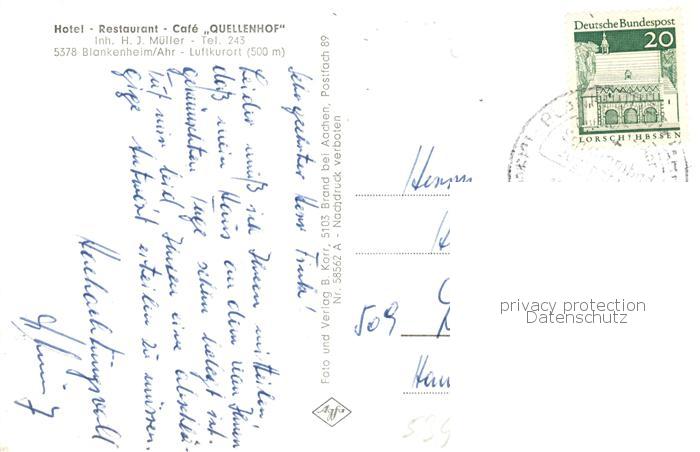 Hotel - Restaurant - Café „QUELLENHOF"
Inh. H. J. Müller - Tel. 243
5378 Blankenheim/Ahr - Luftkurort (500 m)
Sehr geehrter Herr Fink!
Leider muß ich Ihnen mitteilen,
daß mein Haus an dem von Ihnen
gewünschten Tage schon belegt ist.
Tut mir leid Ihnen eine abschlä-
gige Antwort erteilen zu müssen.
Hochachtungsvoll
Foto und Verlag B. Korr, 5103 Brand bei Aachen, Postfach 89
Nr. 58562 A - Nachdruck verboten
Agfa
Deutsche Bundespost
20
LORSCH/HESSEN
Herrn
509
privacy protection
Datenschutz